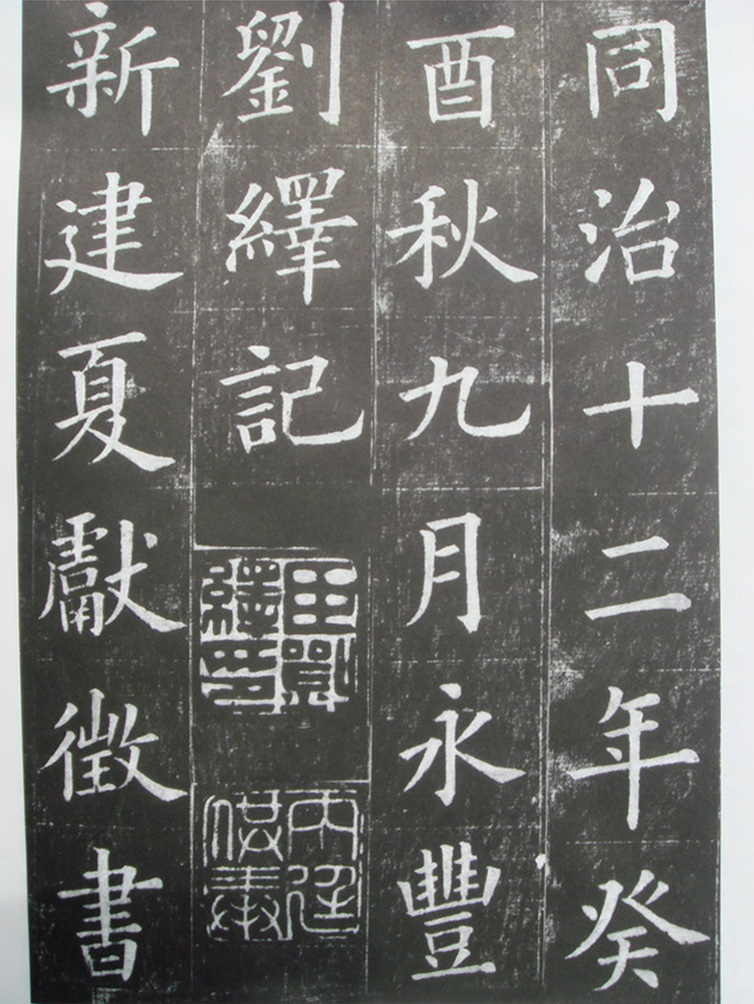 同治十二年癸
酉秋九月永豐
劉繹記
臣劉繹印
內廷供奉
新建夏獻徵書